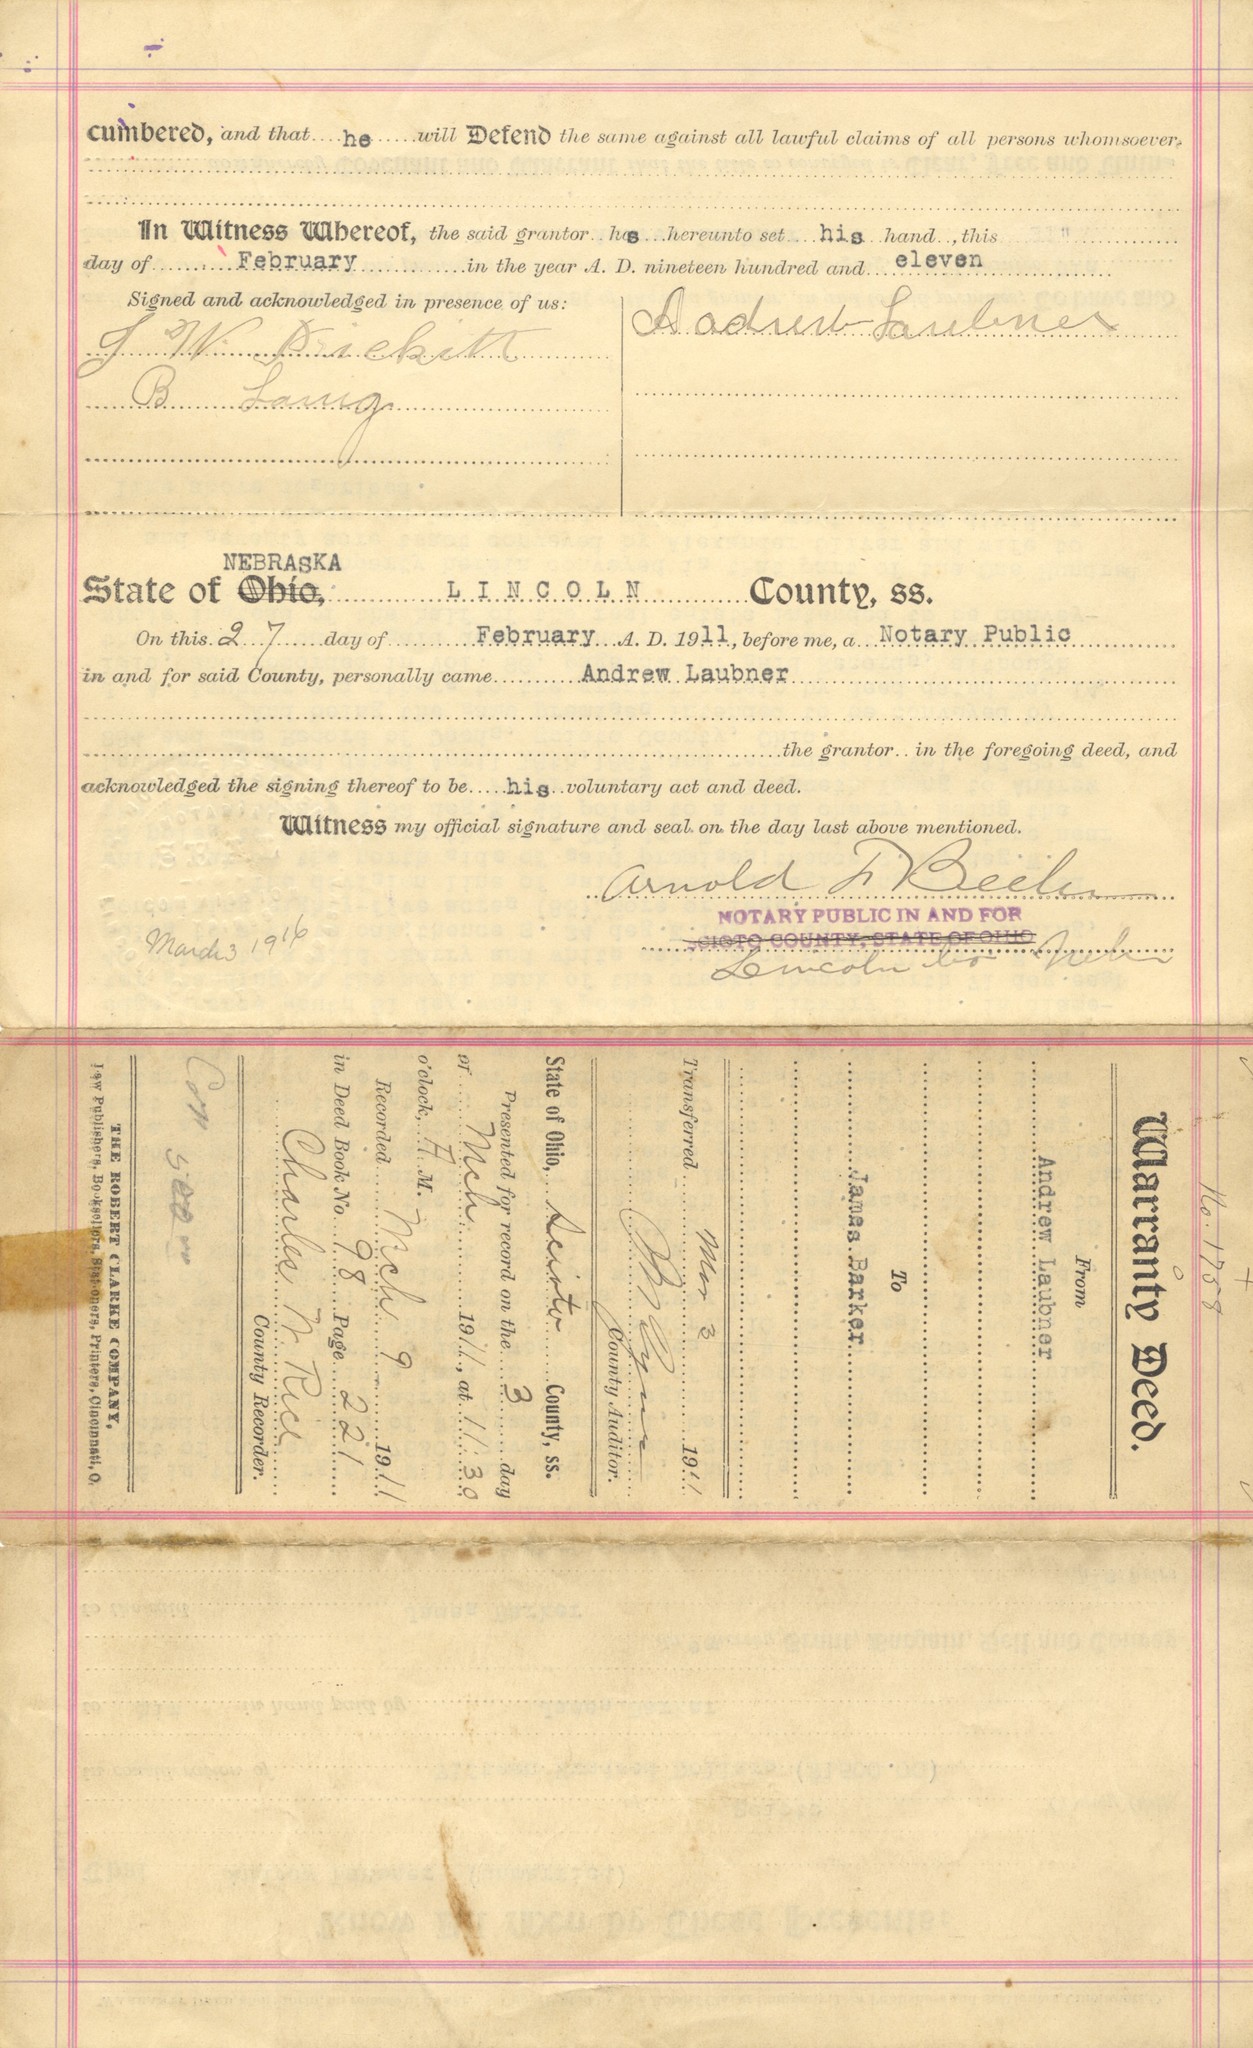 cumbered, and that he will Defend the same against all lawful claims of all persons whomsoever.
In Witness Whereof, the said grantor has hereunto set his hand, this "
day of February in the year A. D. nineteen hundred and eleven
Signed and acknowledged in presence of us:
Andrew Laubner
B Laing
NEBRASKA
State of Ohio, LINCOLN County, ss.
On this 27 day of February A. D. 1911, before me, a Notary Public
in and for said County, personally came Andrew Laubner
the grantor in the foregoing deed, and
acknowledged the signing thereof to be his voluntary act and deed.
Witness my official signature and seal on the day last above mentioned.
Arnold F Beeler
NOTARY PUBLIC IN AND FOR
SCIOTO COUNTY, STATE OF OHIO
Lincoln Co Nebr
March 3 1916
No. 1758
Warranty Deed.
From
Andrew Laubner
To
James Barker
Transferred Mar 3 1911
County Auditor.
State of Ohio, Scioto County, ss.
Presented for record on the 3 day
or Mch 1911, at 11:30
o'clock, A M.
Recorded Mch 9 1911
in Deed Book No. 98 Page 221
Charles W. Rice
County Recorder.
THE ROBERT CLARKE COMPANY,
Law Publishers, Booksellers, Stationers, Printers, Cincinnati, O.